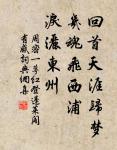 回首天涯歸夢
幾魂飛西浦
淚灑東州
周密一萼紅登蓬萊閣
有感詞典網喜